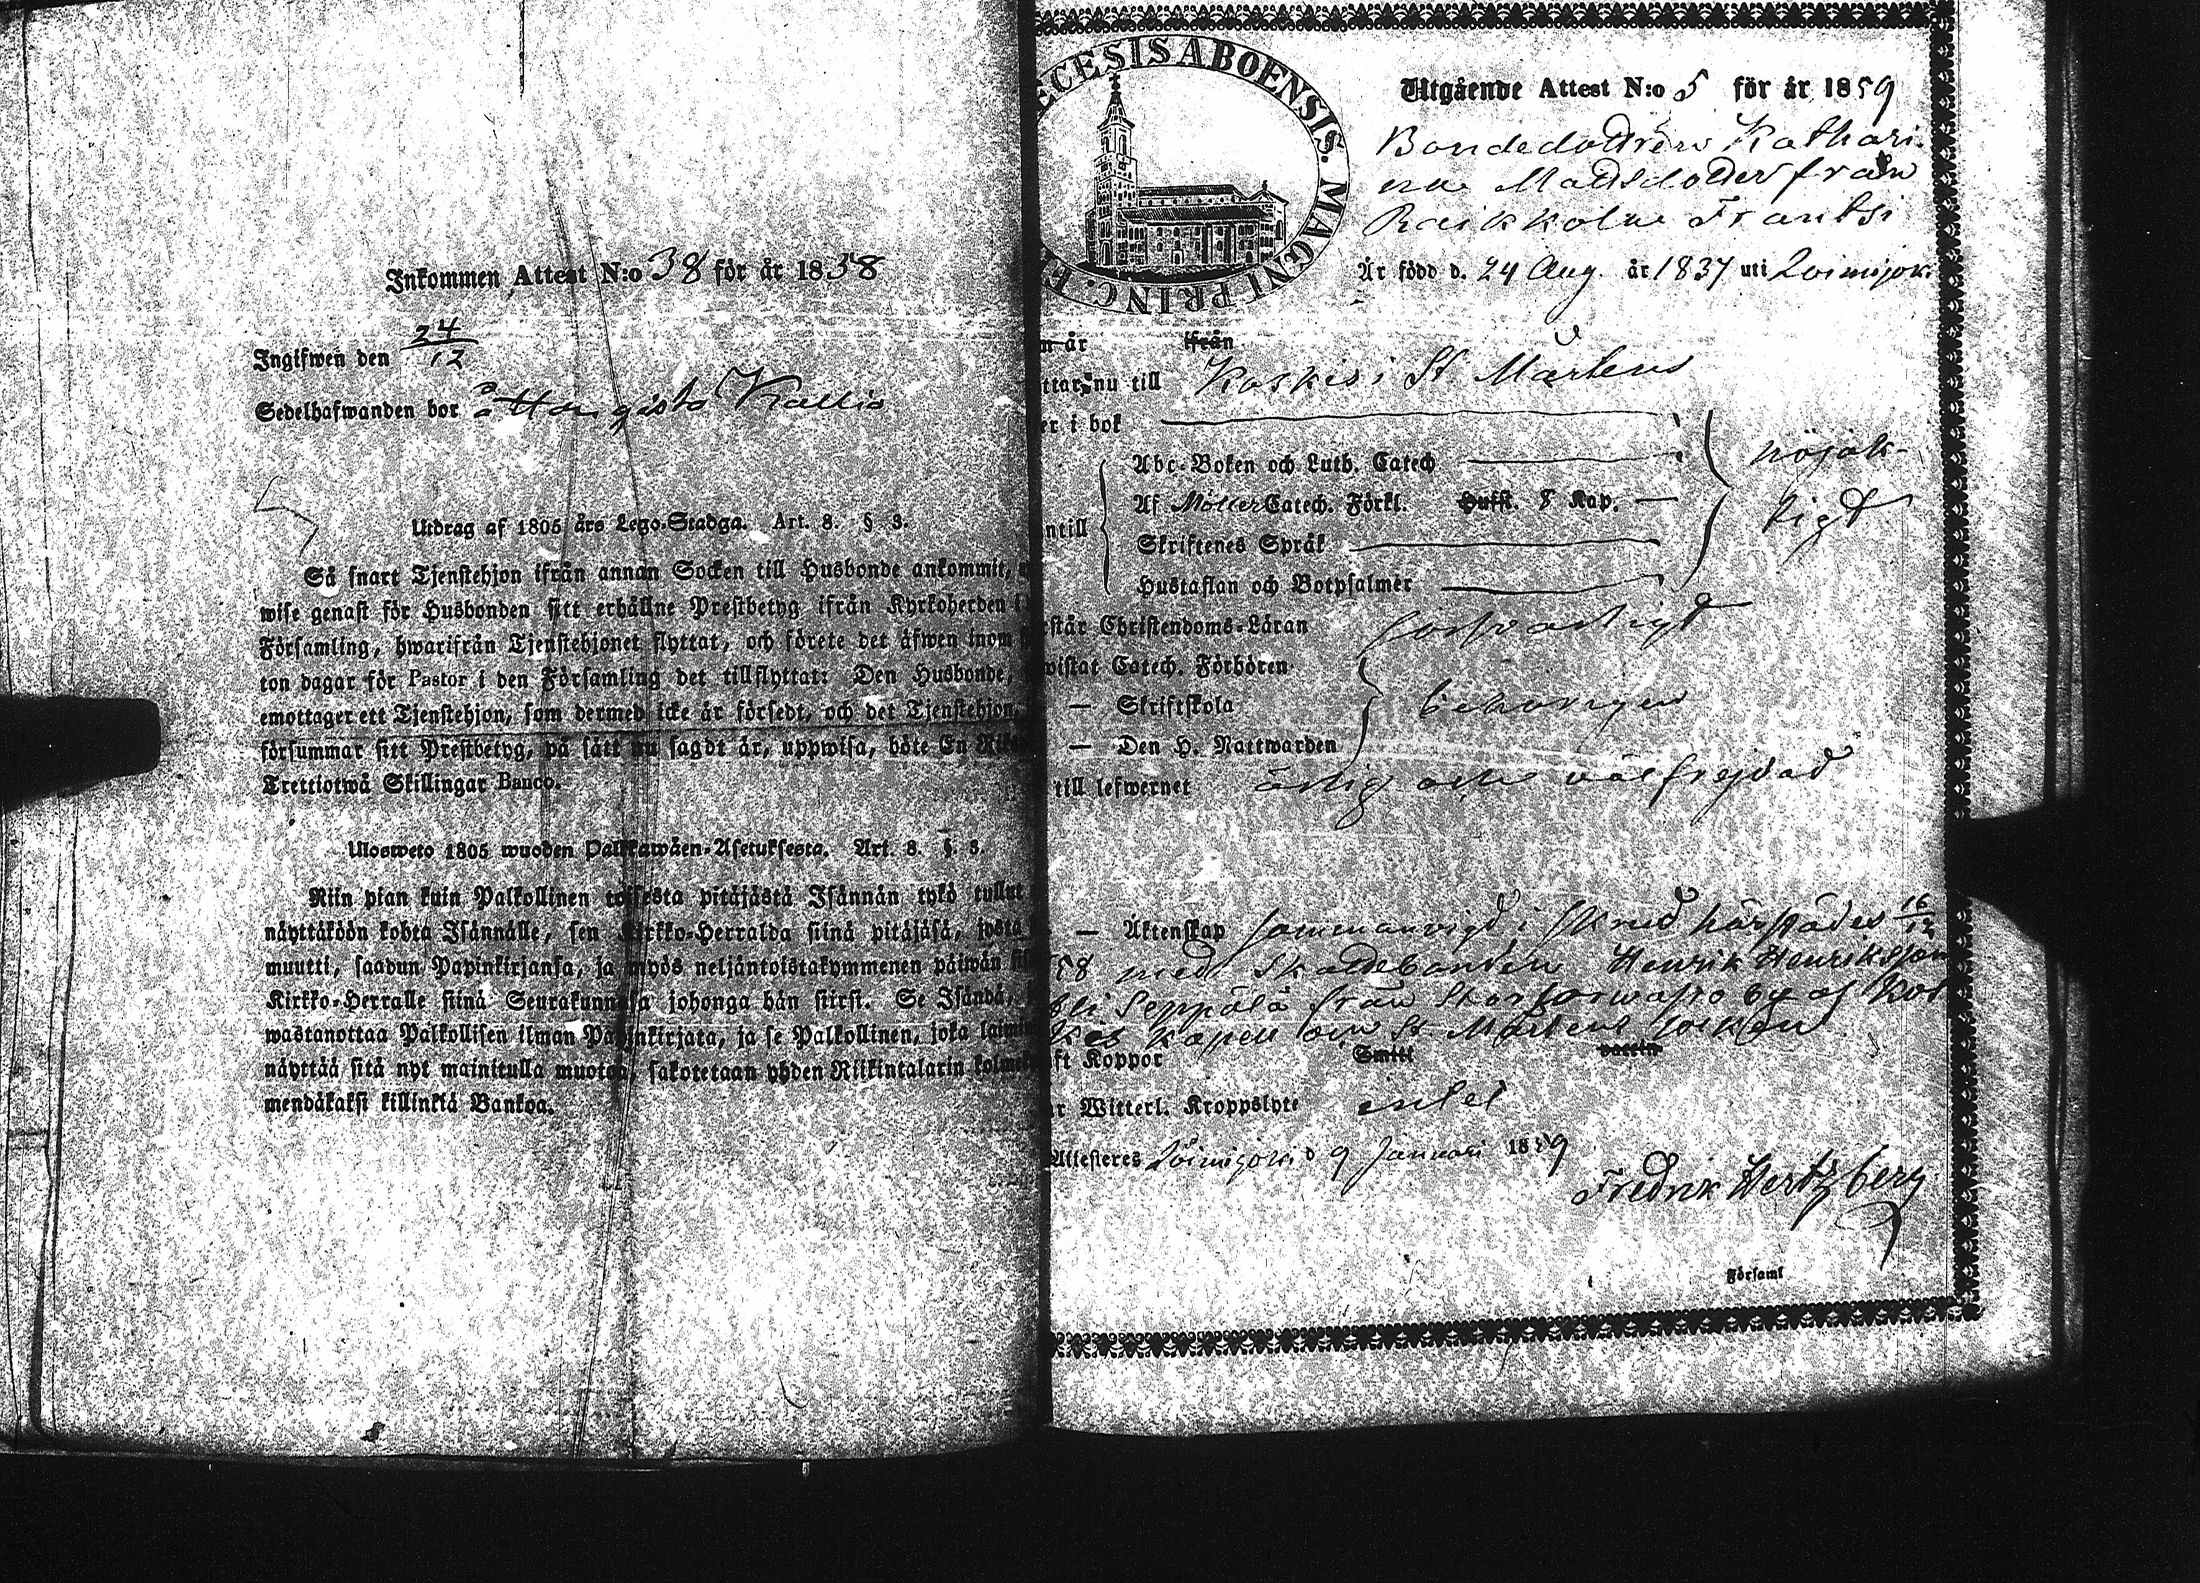 Inkommen Attest N:o 38 för år 1858
Ingifwen den 24/12
Sedelhafwanden bor å Hongisto Kallio
Utdrag af 1805 års Lego-Stadga. Art. 8. § 3.
Så snart Tjenstehjon ifrån annan Socken till Husbonde ankommit,
wise genast för Husbonden sitt erhållne Prestbetyg ifrån Kyrkoherden i
Församling, hwarifrån Tjenstehjonet flyttat, och förete det äfwen inom
ton dagar för Pastor i den Församling det tillflyttat: Den Husbonde,
emottager ett Tjenstehjon, som dermed icke är försedt, och det Tjenstehjon,
försummar sitt Prestbetyg, på sätt nu sagdt är, uppwisa, böte En
Trettiotwå Skillingar Banco.
Ulosweto 1805 wuoden Palkkawäen-Asetuksesta. Art. 8. §. 3.
Niin pian kuin Palkollinen toisesta pitäjästä Isännän tykö tullut
näyttäköön kohta Isännälle, sen Kirkko-Herralda siinä pitäjäsä, josta
muutti, saadun Papinkirjansa, ja myös neljäntoistakymmenen päiwän
Kirkko-Herralle siinä Seurakunnasa johonga hän siirsi. Se Isändä,
wastanottaa Palkollisen ilman Papinkirjata, ja se Palkollinen, joka
näyttää sitä nyt mainitulla muotoa, sakotetaan yhden Riikintalarin
mendäkaksi killinkiä Bankoa.
ECESIS ABOENSIS. MAGNI PRINC.
Utgående Attest N:o 5 för år 1859
Bondedottren Kathari-
na Matsdotter från
Raikkola Frantsi
Är född d. 24 Aug. år 1837 uti Loimijoki
år ifrån
ttar nu till Koskis i St Mårtens
er i bok
Abc-Boken och Luth. Catech
nöjak-
Af Möller Catech. Förkl. Hufst. 8 Kap.
tigt
ntill
Skriftenes Språk
Hustaflan och Botpsalmer
står Christendoms-Läran försvarligt
wistat Catech. Förhören
— Skriftskola behörigen
— Den H. Nattwarden
till lefwernet ärlig och välfrejdad
— Äktenskap sammanvigd i Skrud härstädes 16/12
58 med Skattebonden Henrik Henriksson
Seppälä från by af Kos
kis Kapell av St Mårtens socken
ft Koppor Smitt
r Witterl. Kroppslyte intet
Attesteres Loimijoki d 9 Januari 1859
Fredrik Hertzberg
Församl